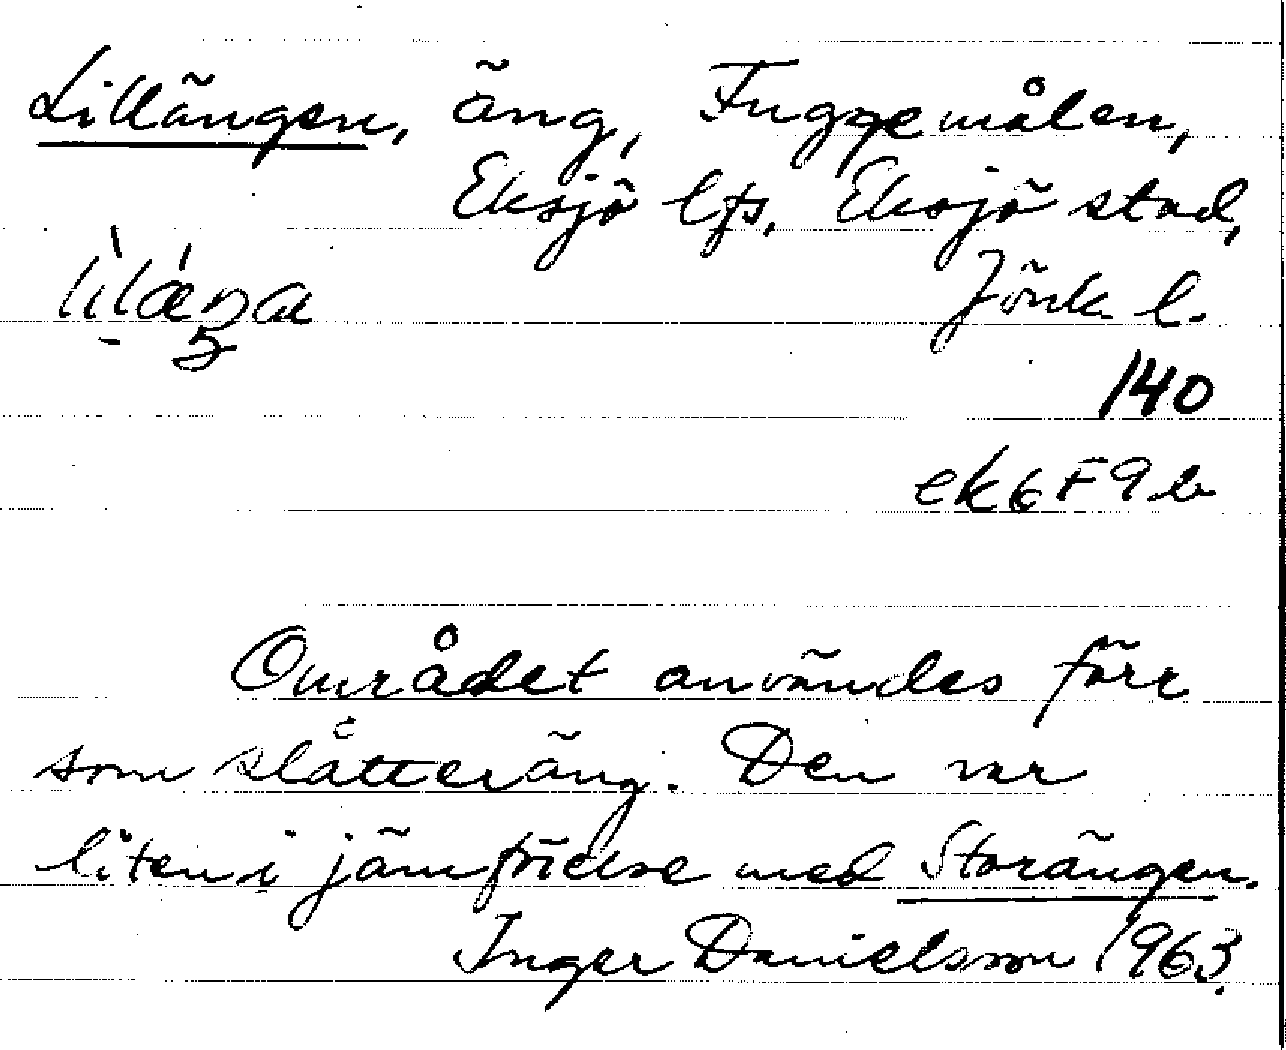 Lillängen, äng, Fuggemålen,
Eksjö lfs, Eksjö stad,
Jönk l.
140
ek 6 F 9 b
Området användes förr
som slåtteräng. Den var
liten i jämförelse med Storängen.
Inger Danielsson 1963.